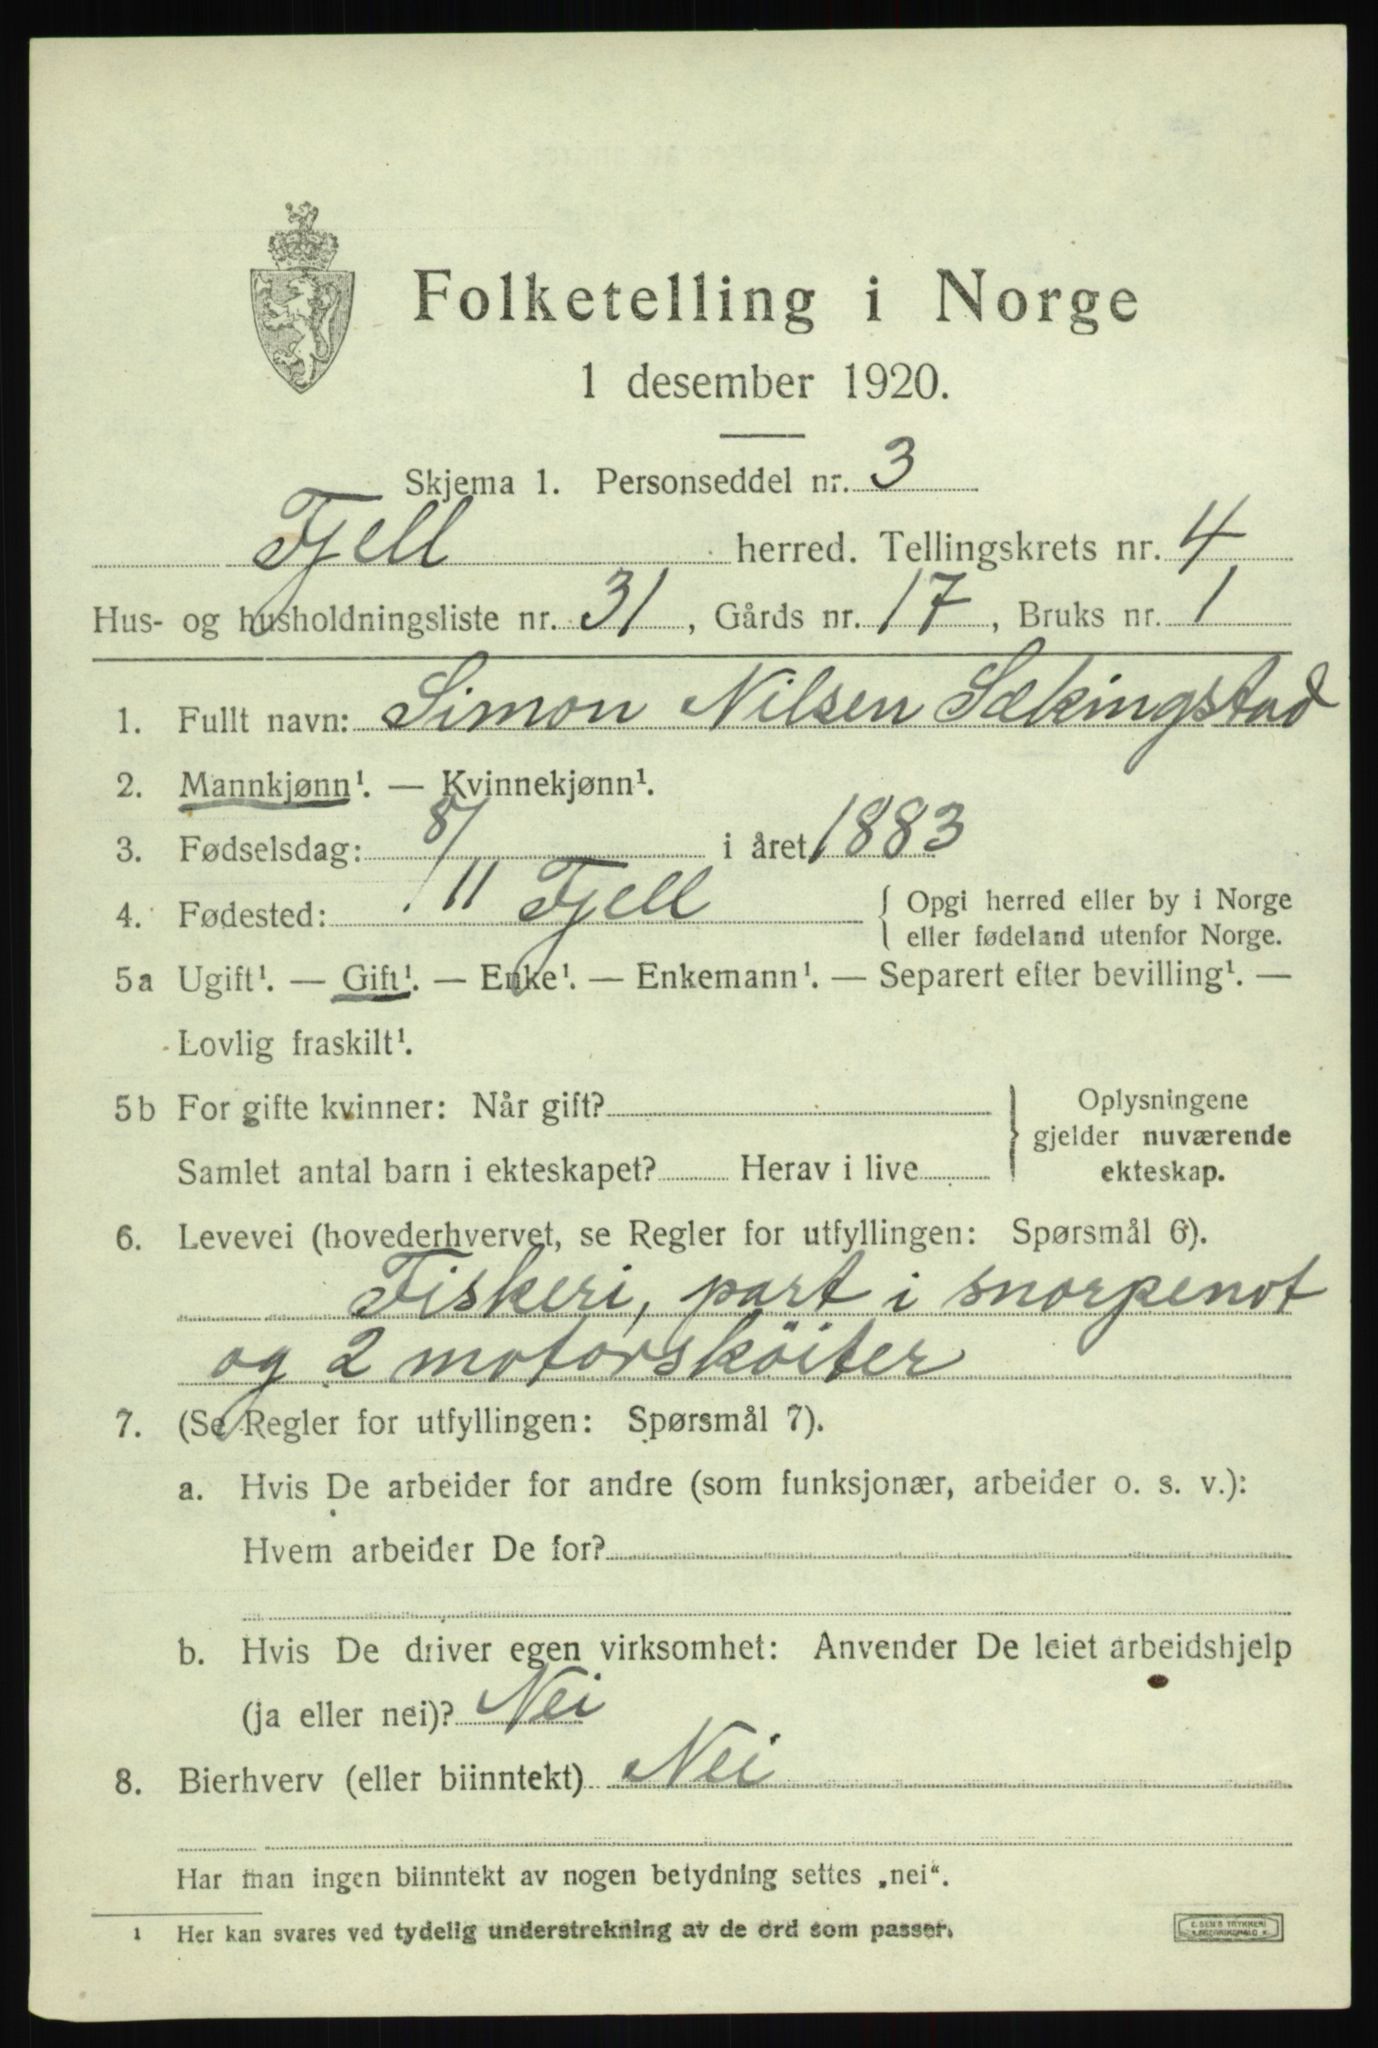 Folketelling i Norge
1 desember 1920.
Skjema 1. Personseddel nr. 3
Fjell herred. Tellingskrets nr. 4
Hus- og husholdningsliste nr. 31, Gårds nr. 17, Bruks nr. 1
1. Fullt navn: Simon Nilsen Sækingstad
2. Mannkjønn¹. — Kvinnekjønn¹.
3. Fødselsdag: 8/11 i året 1883
4. Fødested: Fjell { Opgi herred eller by i Norge
eller fødeland utenfor Norge.
5a Ugift¹. — Gift¹. — Enke¹. — Enkemann¹. — Separert efter bevilling¹. —
Lovlig fraskilt¹.
5b For gifte kvinner: Når gift? } Oplysningene
gjelder nuværende
Samlet antal barn i ekteskapet? Herav i live ekteskap.
6. Levevei (hovederhvervet, se Regler for utfyllingen: Spørsmål 6).
Fiskeri, part i snorpenot
og 2 motorsköiter
7. (Se Regler for utfyllingen: Spørsmål 7).
a. Hvis De arbeider for andre (som funksjonær, arbeider o. s. v.):
Hvem arbeider De for?
b. Hvis De driver egen virksomhet: Anvender De leiet arbeidshjelp
(ja eller nei)? Nei
8. Bierhverv (eller biinntekt) Nei
Har man ingen biinntekt av nogen betydning settes „nei“.
¹ Her kan svares ved tydelig understrekning av de ord som passer.